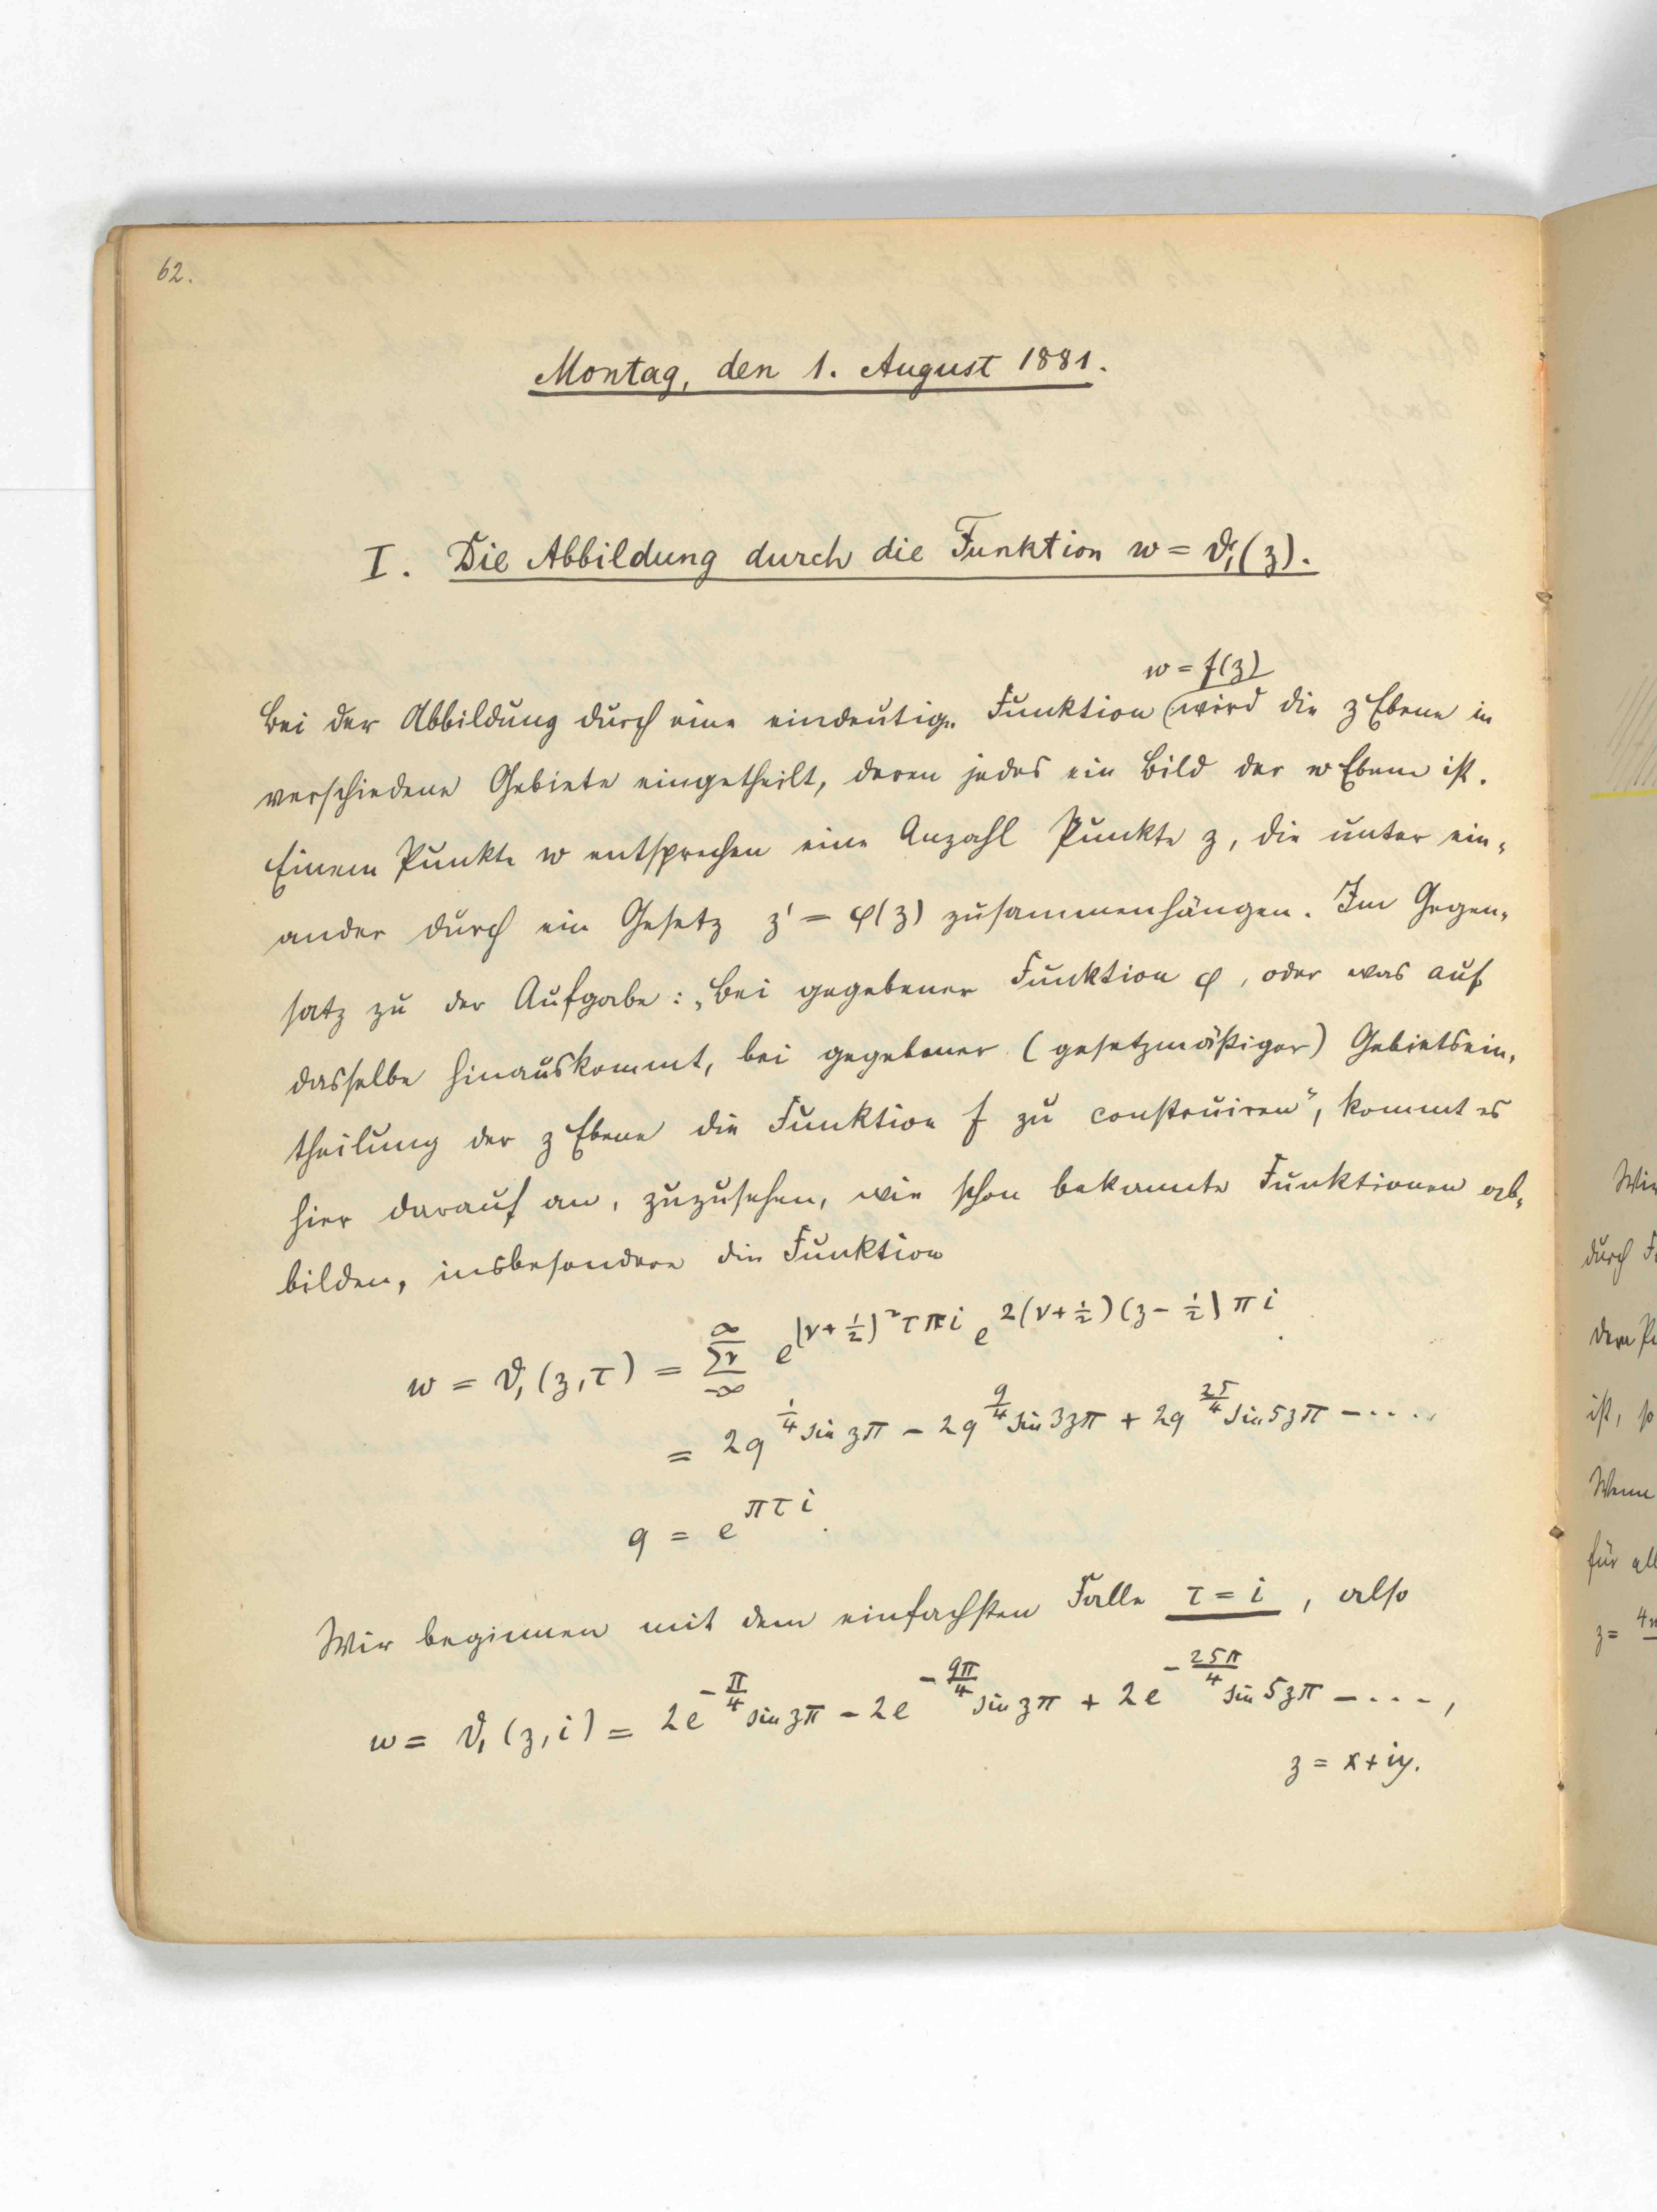 62.
Montag, den 1. August 1881.
I. Die Abbildung durch die Funktion w = ϑ₁(z).
w = f(z)
Bei der Abbildung durch eine eindeutige Funktion wird die z Ebene in
verschiedene Gebiete eingetheilt, deren jedes ein Bild der w Ebene ist.
Einem Punkte w entsprechen eine Anzahl Punkte z, die unter ein-
ander durch ein Gesetz z' = φ(z) zusammenhängen. Im Gegen-
satz zu der Aufgabe: „Bei gegebener Funktion φ, oder was auf
dasselbe hinauskommt, bei gegebener (gesetzmäßiger) Gebietsein-
theilung der z Ebene die Funktion f zu construiren“, kommt es
hier darauf an, zuzusehen, wie schon bekannte Funktionen ab-
bilden, insbesondere die Funktion
w = ϑ₁(z,τ) = \sum_{-∞}^{∞}ν e^{(ν+½)²τπi} e^{2(ν+½)(z-½)πi}.
= 2q^{1/4} sin zπ − 2q^{9/4} sin 3zπ + 2q^{25/4} sin 5zπ − ....
q = e^{πτi}.
Wir beginnen mit dem einfachsten Falle τ = i, also
w = ϑ₁(z,i) = 2e^{-π/4} sin zπ − 2e^{-9π/4} sin zπ + 2e^{-25π/4} sin 5zπ − ....,
z = x + iy.
Wir
durch
dem
ist, so
Wenn
für all
z =